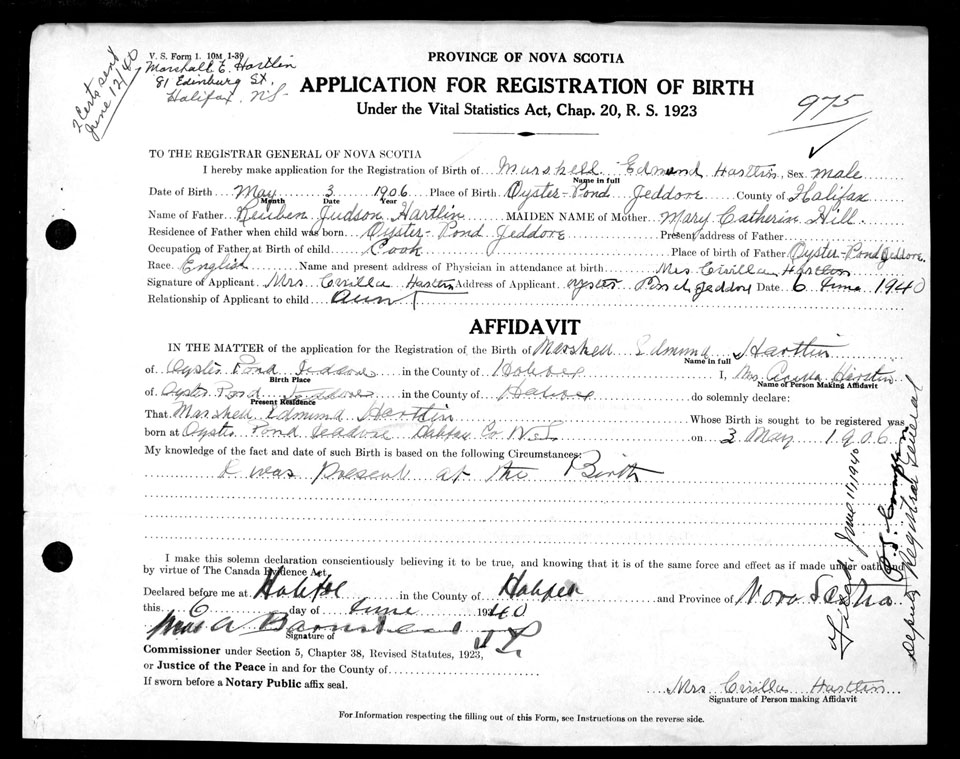 V. S. Form 1. 10M 1-39
Marshall E. Hartlin
81 Edinburg St.
Halifax, N.S.
2 Certs sent
June 12/40
PROVINCE OF NOVA SCOTIA
APPLICATION FOR REGISTRATION OF BIRTH
Under the Vital Statistics Act, Chap. 20, R. S. 1923
975
TO THE REGISTRAR GENERAL OF NOVA SCOTIA
I hereby make application for the Registration of Birth of Marshell Edmund Hartlin, Sex male
Name in full
Date of Birth May 3 1906 Place of Birth Oyster-Pond Jeddore County of Halifax
Month Date Year
Name of Father Reuben Judson Hartlin MAIDEN NAME of Mother Mary Catherine Hill
Residence of Father when child was born Oyster-Pond Jeddore Present address of Father
Occupation of Father at Birth of child Cook Place of birth of Father Oyster-Pond Jeddore
Race English Name and present address of Physician in attendance at birth Mrs Hartlin
Signature of Applicant Mrs Hartlin Address of Applicant oyster Pond Jeddore Date 6 June 1940
Relationship of Applicant to child aunt
AFFIDAVIT
IN THE MATTER of the application for the Registration of the Birth of Marshell Edmund Hartlin
Name in full
of Oyster Pond Jeddore in the County of I, Mrs Hartlin
Birth Place Name of Person Making Affidavit
of Oyster Pond Jeddore in the County of do solemnly declare:
Present Residence
That Marshell Edmund Hartlin Whose Birth is sought to be registered was
born at Oyster Pond Halifax Co N.S. on 3 May 1906
My knowledge of the fact and date of such Birth is based on the following Circumstances:
I was Present at the Birth
I make this solemn declaration conscientiously believing it to be true, and knowing that it is of the same force and effect as if made under oath and
by virtue of The Canada Evidence Act.
Declared before me at in the County of and Province of Nova Scotia
this 6 day of June 1940
Signature of
Commissioner under Section 5, Chapter 38, Revised Statutes, 1923,
or Justice of the Peace in and for the County of
If sworn before a Notary Public affix seal.
Mrs Hartlin
Signature of Person making Affidavit
For Information respecting the filling out of this Form, see Instructions on the reverse side.
Filed June 11, 1940
Deputy Registrar General